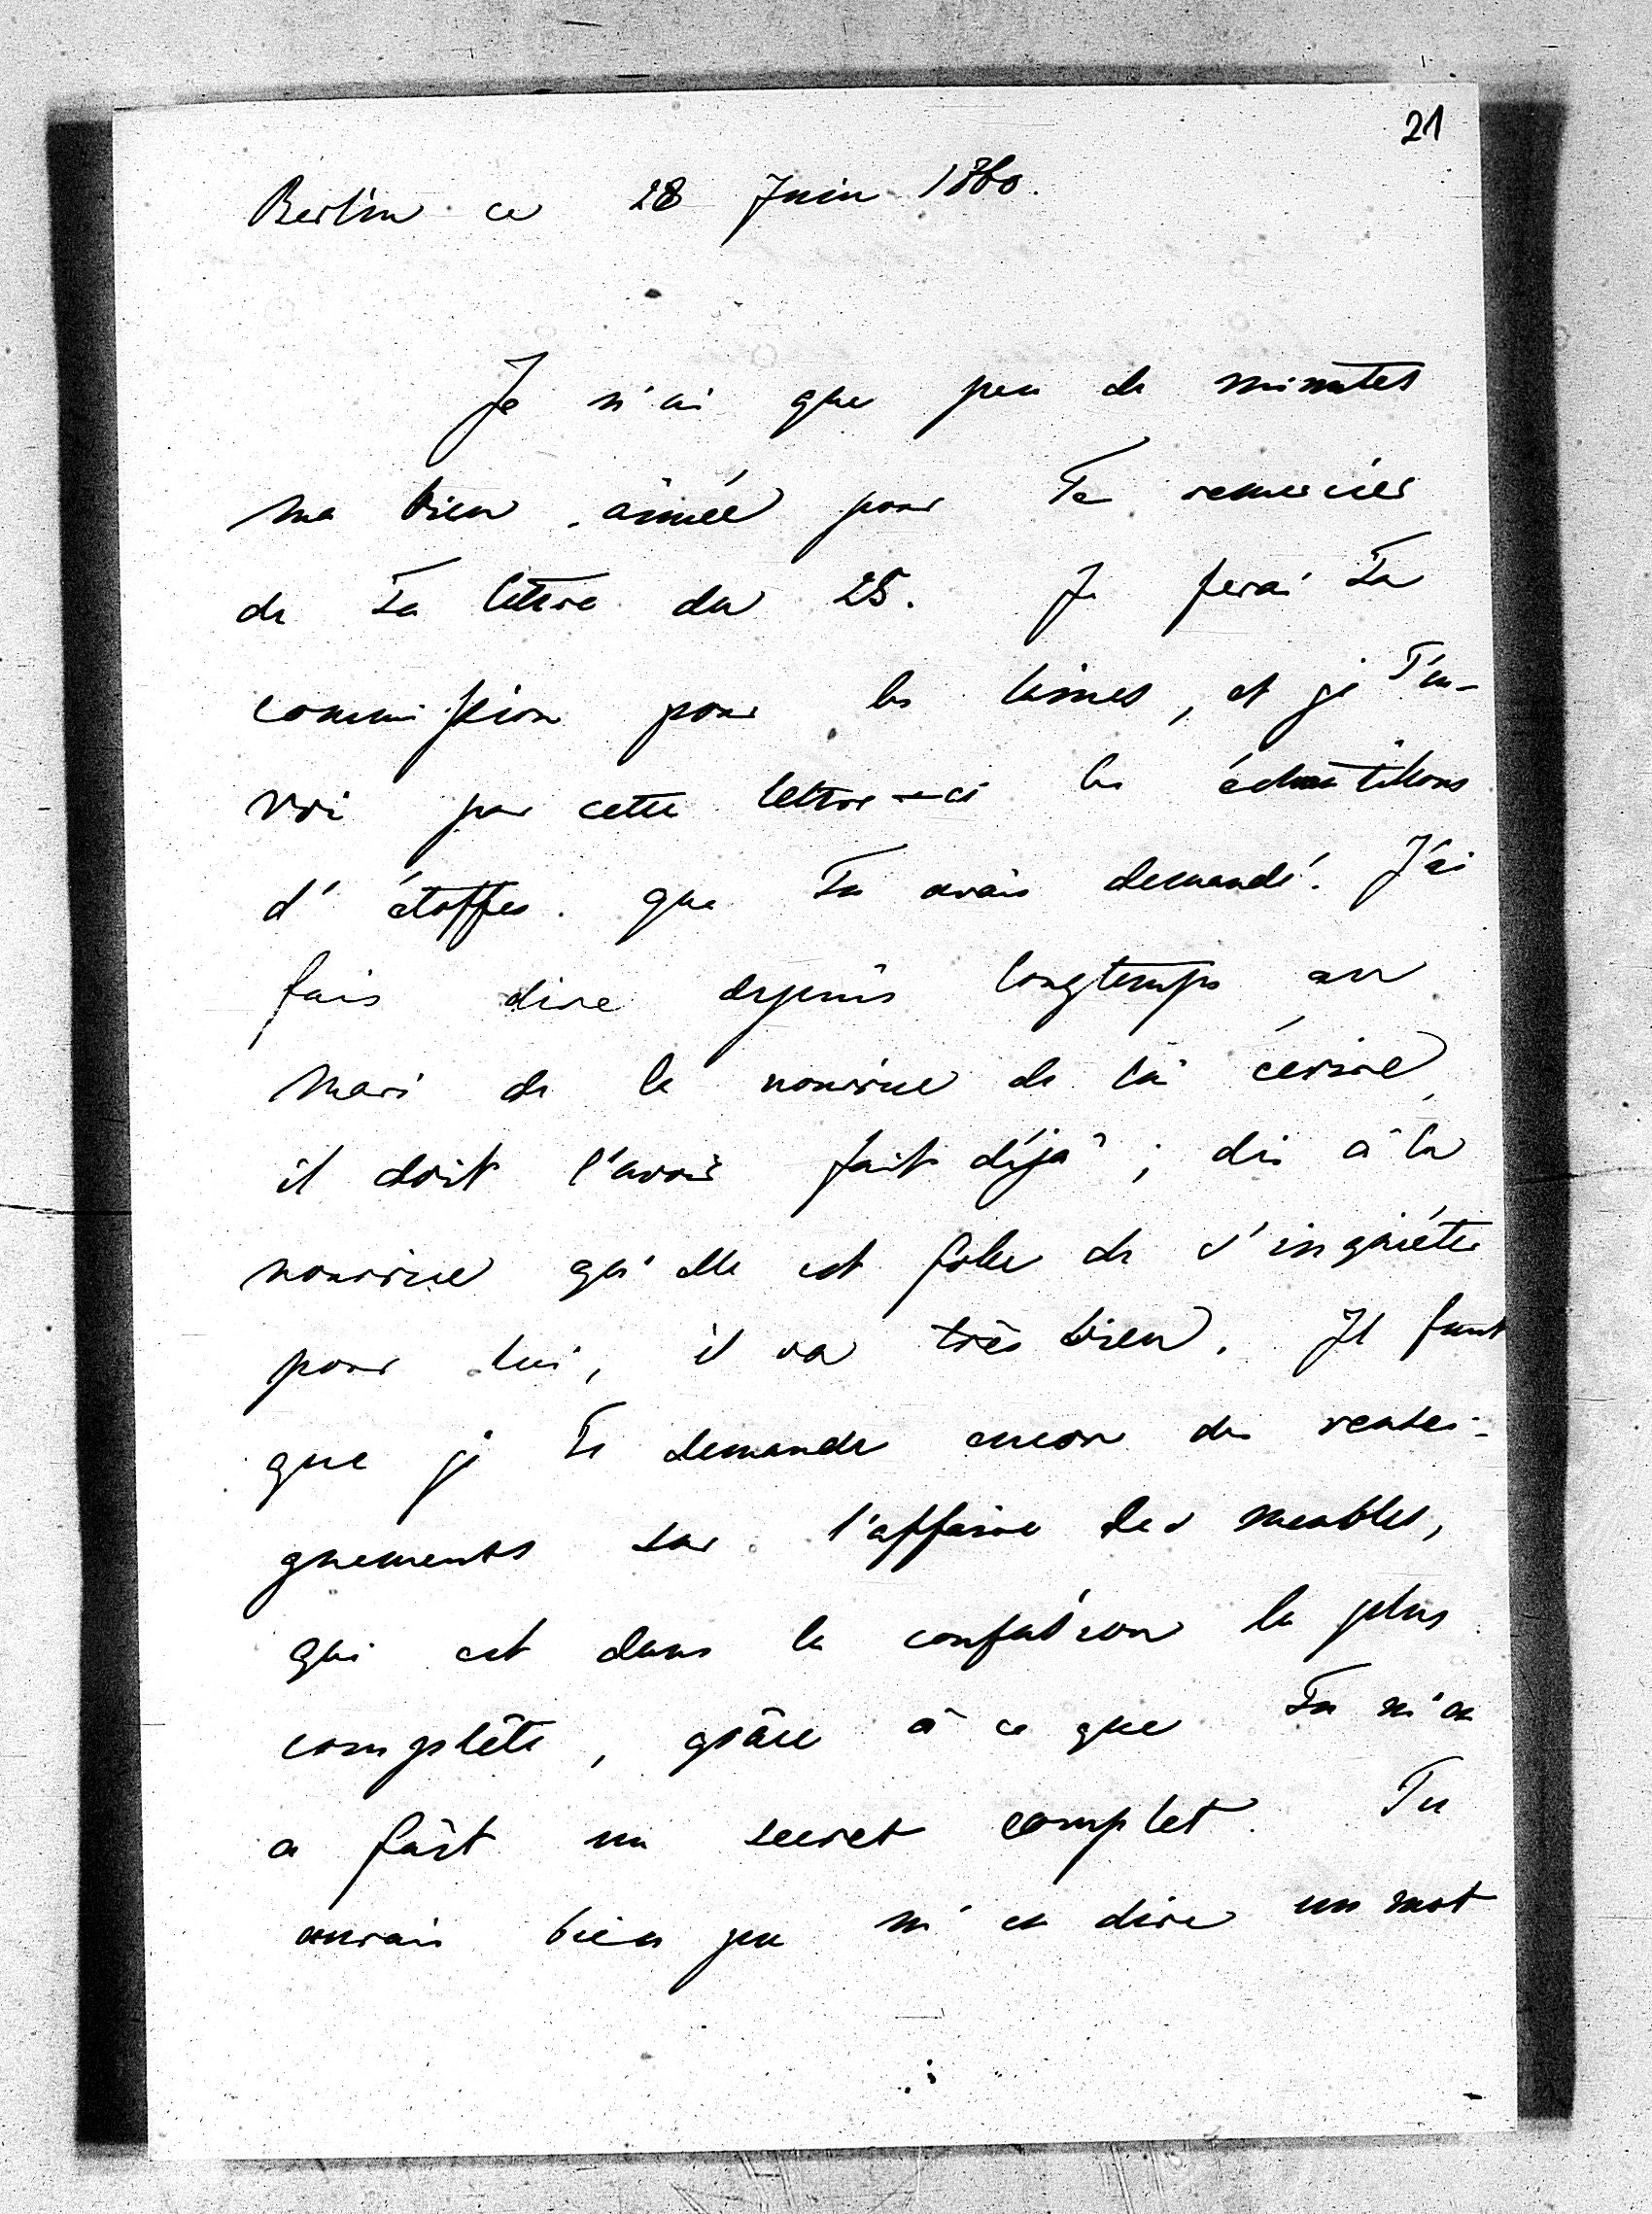 21
Berlin ce 28 Juin 1860.
Je n'ai que peu de minutes
ma bien aimée pour Te remercier
de Ta lettre du 25. Je ferai Ta
commission pour les , et je T'en-
voi par cette lettre-ci les échantillons
d'étoffes que Tu avais demandé. J'ai
fais dire depuis longtemps au
mari de la nourrice de lui écrire,
il doit l'avoir fait déjà; dis à la
nourrice qu'elle est folle de s'inquiéter
pour lui, il va très bien. Il faut
que je Te demande encore des rensei-
gnements sur l'affaire des meubles,
qui est dans la confusion la plus
complète, grâce à ce que Tu m'en
a fait un secret complet. Tu
aurais bien pu m'en dire un mot